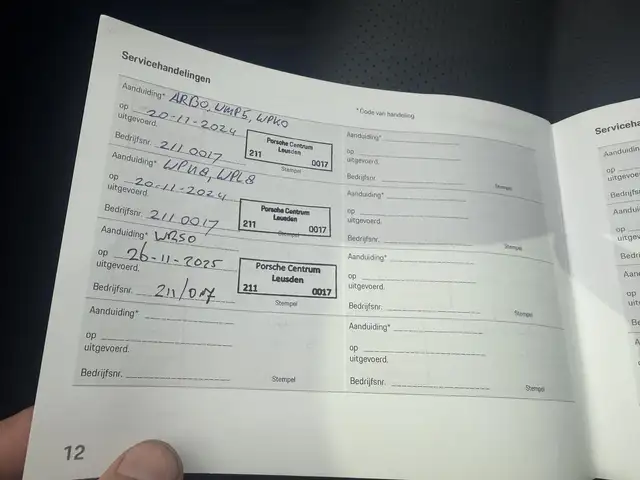 Servicehandelingen
* Code van handeling
Aanduiding* ARB0, WMP5, WPK0
op 20-11-2024
uitgevoerd.
Bedrijfsnr. 211 0017
Porsche Centrum
Leusden
211 0017
Stempel
Aanduiding* WPN8, WPL8
op 20-11-2024
uitgevoerd.
Bedrijfsnr. 211 0017
Porsche Centrum
Leusden
211 0017
Stempel
Aanduiding* WRS0
op 26-11-2025
uitgevoerd.
Bedrijfsnr. 211/017
Porsche Centrum
Leusden
211 0017
Stempel
Aanduiding*
op
uitgevoerd.
Bedrijfsnr.
Stempel
Aanduiding*
op
uitgevoerd.
Bedrijfsnr.
Stempel
Aanduiding*
op
uitgevoerd.
Bedrijfsnr.
Stempel
Aanduiding*
op
uitgevoerd.
Bedrijfsnr.
Stempel
Aanduiding*
op
uitgevoerd.
Bedrijfsnr.
Stempel
12
Serviceha
Aanduidin
op
uitgevoe